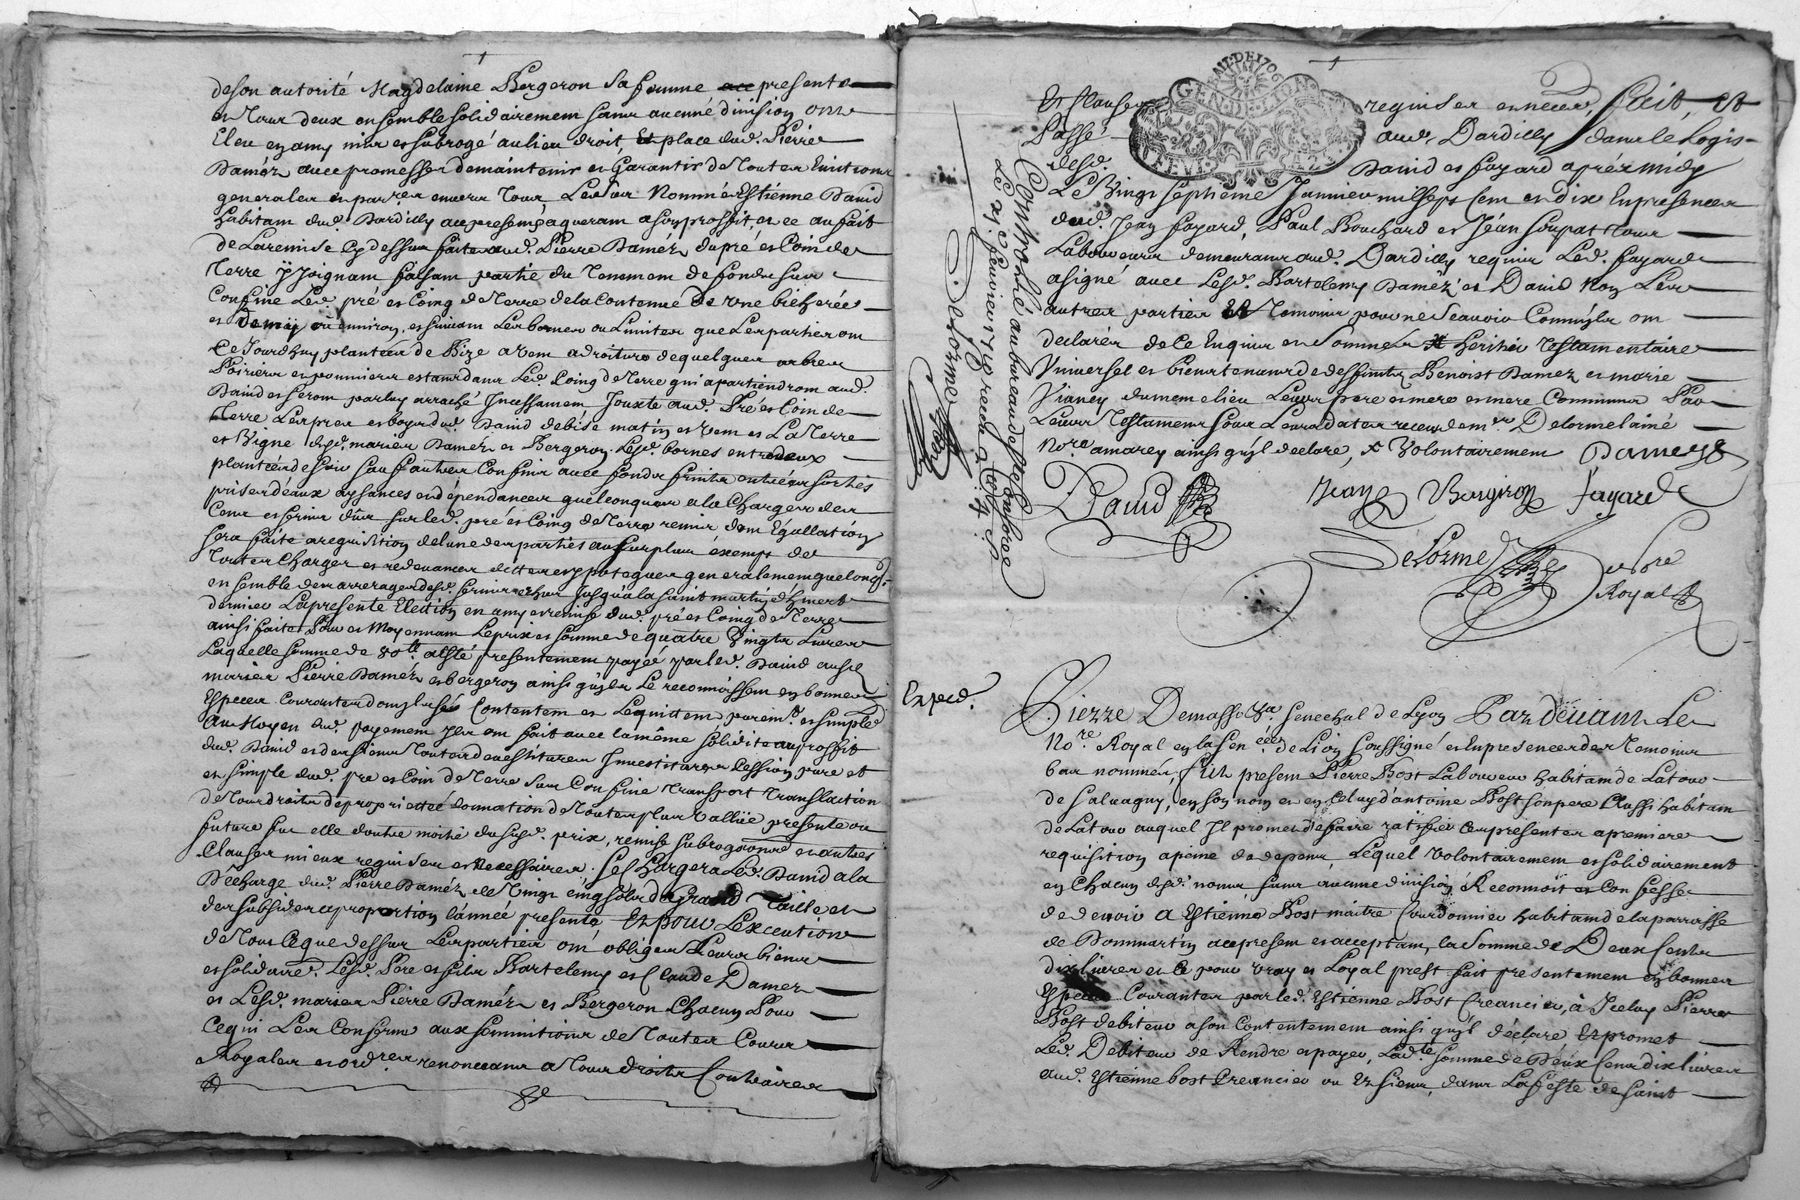 de son autorité Magdelaine Bergeron sa femme presente
et tous deux ensemble solidairement sans aucune division ont
Eleu en amy mis et subrogé au lieu droit, et place dud. Pierre
Daméz avec promesse de maintenir et Garantir de toutes Evictions
generales et particu envers tous Le Sr Nommé Estienne David
habitant dud. Dardilly acceptant aquerant a son proffit, et ce au fait
de La remise cy dessus faite aud. Pierre Daméz du pré et Coin de
Terre y joignant faisant partie du tenement de fonds sus
Confine Led. pré et Coing de Terre de la Contenue de une bicherée
et demÿ ou environ, et suivant Les bornes ou Limites que Les parties ont
Ce Jourdhuy plantées de Bize a vent a droiture de quelques arbres
Poiriers et pommiers estant dans Led. Coing de Terre qui apartiendront aud.
David et seront par luy arraché Incessament Jouxte aud. Pré et Coin de
Terre Les prés et dud. David de bise matin et vent et La Terre
et Vigne desd. mariés Daméz et Bergeron Lesd. bornes entredeux
plantées sauf autres Confins avec fonds fruits entrées sorties
prises d'eaux aysances et dépendances quelconques a la Charge des
Cens et servis dûs sur led. pré et Coing de Terre Egallation
sera faite a requisition de lune des parties au surplus exempt de
Toutes Charges et redevances dettes et ypoteques generalement quelconq.
ensemble des arrerages desd. servis jusqu'a la saint martin d'hivert
dernier La presente Election en amy et remise dud. pré et Coing de Terre
ainsi faite Pour et Moyennant Le prix et somme de quatre Vingts Livres
Laquelle somme de 80tt a esté presentement payée par led. David ausd.
mariés Pierre Daméz et bergeron ainsi qu'ils Le reconnoissent en bonnes
Especes Courantes dont ils se Contentent et Le quittent purem.t et simple.t
Au Moyen dud. payement Ils ont fait avec la même solidité au proffit
dud. David et des siens Toutes devestitures Investitures Cession pure et
et simple dud. pré et Coin de Terre Sus Confine Transport Translation
de tous droits de proprieté donation de toutes plus Vallüe presente ou
future fut elle d'outre moitié du juste prix, remise subrogations et autres
Clauses mieux requises et necessaires. Se Chargera Led. David a la
Décharge dud. Pierre Daméz de Vingt cinq sols de Grand Taille et
des subsides a proportion l'année presente Et pour L'exécution
de tout Ce que dessus Les parties ont obligé Leurs biens
et solidaire. Lesd. Pere et fils Bartelemy et Claude Damez
et Lesd. mariés Pierre Daméz et Bergeron Chacun Pour
Ce qui Les Conserne aux sommitions de Toutes Cours
Royales et ord.res renoncant a tous droits Contraires
Et Clauses requises et necess. fait, et
Passé aud. Dardilly dans le Logis
desd. David et fayard aprés midy
Le Vingt septieme Janvier mil sept Cent et dix En presence
dud. Jean fayard, Paul Bouchard et Jéan Coupat Tous
Laboureurs demeurant aud. Dardilly requis Led. fayard
a signé avec Lesd. Bartelemy Daméz et David Non Les
autres parties Et Temoins pour ne Scavoir Comme ils ont
declaré de Ce Enquis et Sommés heritier Testamentaire
Universel et bientenant de deffunts Benoist Damez et marie
Vianey du meme lieu Leurs pere et mere Communs Par
Leurs Testaments sous Leurs dates receus de m.re Delorme lainé
No.re a marcy ainsi qu'jl declare, Volontairement Damez
David Jean Bergeron fayard
Delorme No.re
Royal
GEN. DE LION
Controllé au bureau de
Le 21.e fevrier 1710 receu
Delorme
Exped.
Pierre Demasso Senechal de Lyon Par devant Le
No.re Royal en la Sen.ééé de Lion soussigné et En presence des Temoins
bas nommés, fut present Pierre Bost Laboureur habitant de Latour
de Salvagny, en son nom et en Celuy d'antoine Bost son pere Aussi habitant
de Latour auquel Il promet de faire ratifier Ces presentes a premiere
requisition a peine de depens, Lequel Volontairement et solidairement
en Chacun desd. noms sans aucune division Reconnoit et Confesse
de devoir A Estienne Bost maitre Cordonnier habitant de la parroisse
de Dommartin acceptant, la Somme de Deux Cents
dix livres et Ce pour vray et Loyal prest fait presentement en bonnes
Especes Courantes par led. Estienne Bost Creancier, à Iceluy Pierre
Bost debiteur a son Contentement ainsi qu'jl declare Et promet
Led. Debiteur de Rendre et payer, Lad.te Somme de Deux Cent dix livres
aud. Estienne bost Creancier ou Es siens, dans La feste de Saint